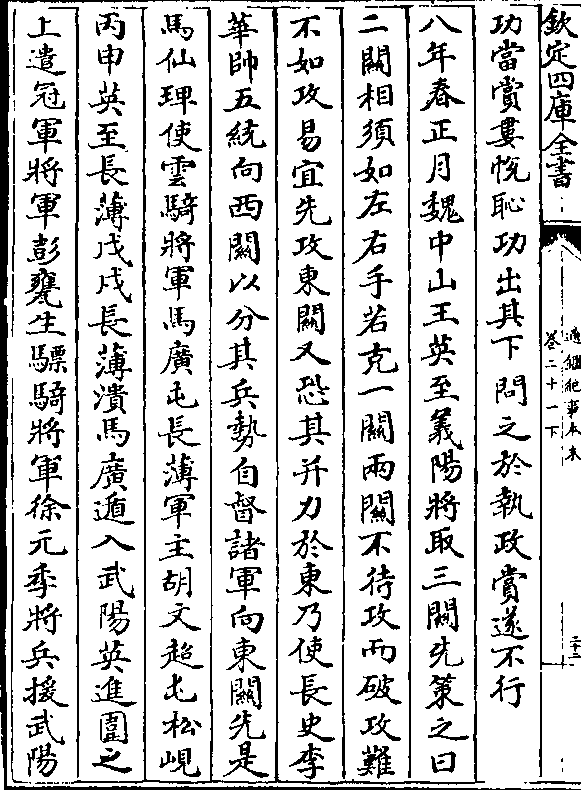 欽定四庫全書
通鑑紀事本末
卷二十一下
二十二
功當賞婁悅恥功出其下問之於執政賞遂不行
八年春正月魏中山王英至義陽將取三關先策之曰
二關相須如左右手若克一關兩關不待攻而破攻難
不如攻易宜先攻東關又恐其并力於東乃使長史李
華帥五統向西關以分其兵勢自督諸軍向東關先是
馬仙琕使雲騎將軍馬廣屯長薄軍主胡文超屯松峴
丙申英至長薄戊戌長薄潰馬廣遁入武陽英進圍之
上遣冠軍將軍彭甕生驃騎將軍徐元季將兵援武陽